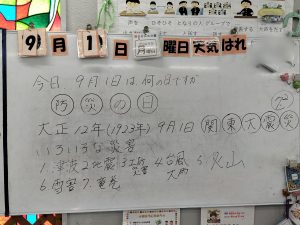 9月1日 曜日天気はれ
今日 9月1日は、何の日ですか
防災の日
大正12年(1923年)9月1日 関東大震災
いろいろな災害
1.津波 2.地震 3. 災害 4.台風 5.火山
大雨
6.雪害 7.竜巻